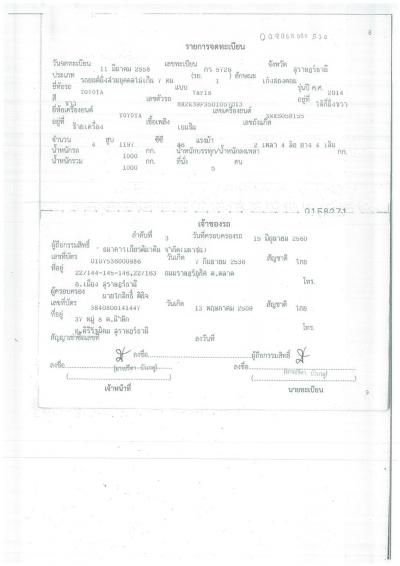 8
รายการจดทะเบียน
วันจดทะเบียน 11 มีนาคม 2558 เลขทะเบียน กร 5728 จังหวัด สุราษฎร์ธานี
ประเภท รถยนต์นั่งส่วนบุคคลไม่เกิน 7 คน (รย. 1 ) ลักษณะ เก๋งสองตอน
ยี่ห้อรถ TOYOTA แบบ Yaris รุ่นปี ค.ศ. 2014
สี ขาว เลขตัวรถ อยู่ที่
ยี่ห้อเครื่องยนต์ TOYOTA เลขเครื่องยนต์
อยู่ที่ เชื้อเพลิง เบนซิน เลขถังแก๊ส
จำนวน 4 สูบ 1197 ซีซี แรงม้า 2 เพลา 4 ล้อ ยาง 4 เส้น
น้ำหนักรถ 1000 กก. น้ำหนักบรรทุก/น้ำหนักลงเพลา กก.
น้ำหนักรวม 1000 กก. ที่นั่ง 5 คน
0158271
เจ้าของรถ
ลำดับที่ 3 วันที่ครอบครองรถ 15 มิถุนายน 2560
ผู้ถือกรรมสิทธิ์ ธนาคารเกียรตินาคิน จำกัด(มหาชน)
เลขที่บัตร 0107536000986 วันเกิด 7 กันยายน 2536 สัญชาติ ไทย
ที่อยู่ 22/144-145-146,22/163 ถนนราษฎร์อุทิศ ต.ตลาด
อ.เมือง สุราษฎร์ธานี โทร.
ผู้ครอบครอง
เลขที่บัตร 3840800141447 วันเกิด 13 พฤษภาคม 2509 สัญชาติ ไทย
ที่อยู่ 37 หมู่ 8
อ.คีรีรัฐนิคม สุราษฎร์ธานี โทร.
สัญญาเช่าซื้อเลขที่ ลงวันที่
ลงชื่อ ผู้ถือกรรมสิทธิ์
ลงชื่อ ลงชื่อ
เจ้าหน้าที่ นายทะเบียน
9